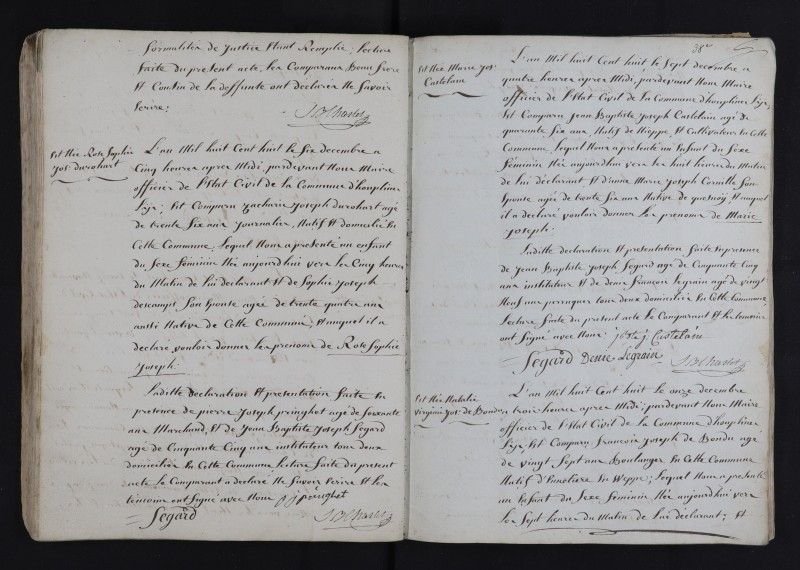 formalités de Justice étant Remplie ; lecture
faite du present acte, les Comparans Beau frere
Et Cousin de la deffunte ont déclarés Ne Savoir
Ecrire ;
Est Née Rose Sophie
Jos. durohart
L'an Mil huit Cent huit le Six decembre a
Cinq heures apres Midi, pardevant Nous Maire
officier de l'Etat Civil de la Commune d'houpline
Lys, Est Comparu Zacharie Joseph durohart agé
de trente Six ans Journalier, Natif et domicilié En
Cette Commune, lequel Nous a presenté un enfant
du Sexe féminin Née aujourd'hui vers les Cinq heures
du Matin de lui déclarant Et de Sophie Joseph
descampt Son Epouse agée de trente quatre ans
aussi Native de Cette Commune ; Et auquel il a
declaré vouloir donner les prenoms de Rose Sophie
Joseph.
Laditte declaration Et presentation faite En
presence de pierre Joseph pringhet agé de Soixante
ans Marchand, Et de Jean Baptiste Joseph Segard
agé de Cinquante Cinq ans instituteur tous deux
domiciliés En Cette Commune, lecture faite du present
acte le Comparant a declaré Ne Savoir Ecrire Et les
témoins ont Signé avec Nous
Segard
38
Est Née Marie Jos.
Castelain
L'an Mil huit Cent huit le Sept decembre a
quatre heures apres Midi, pardevant Nous Maire
officier de l'Etat Civil de la Commune d'houpline Lys,
Est Comparu Jean Baptiste Joseph Castelain agé de
quarante Six ans Natif de Nieppe, Et Cultivateur En Cette
Commune, lequel Nous a présenté un Enfant du Sexe
féminin Née aujourd'hui vers les huit heures du Matin
de lui déclarant Et d'inne Marie Joseph Cornille Son
Epouse agée de trente Six ans Native de quesnoy Et auquel
il a declaré vouloir donner les prenoms de Marie
Joseph.
Laditte déclaration Et presentation faite En presence
de Jean Baptiste Joseph Segard agé de Cinquante Cinq
ans instituteur Et de denis françois Legrain agé de vingt
Neuf ans perruquer tous deux domiciliés En Cette Commune
Lecture faite du present acte le Comparant Et les témoins
ont Signé avec Nous. Castelain
Segard Denis Legrain
Est Née Natalie
virginie Jos. de Bondu
L'an Mil huit Cent huit le onze decembre
a trois heures apres Midi, pardevant Nous Maire
officier de l'Etat Civil de la Commune d'houpline
Lys, Est Comparu françois Joseph de Bondu agé
de vingt Sept ans Boulanger En Cette Commune
Natif d' En Weppe ; lequel Nous a presenté
un Enfant du Sexe féminin Née aujourd'hui vers
les Sept heures du Matin de lui déclarant ; Et